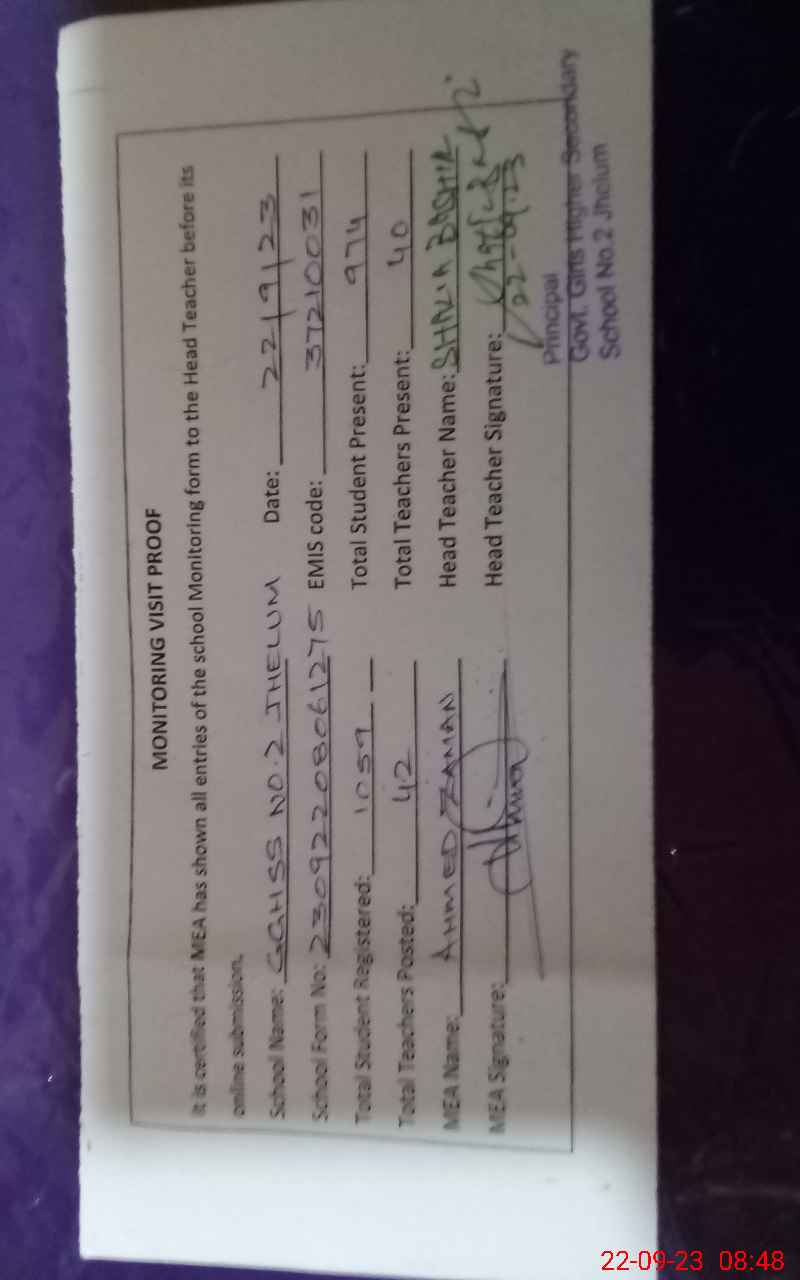 MONITORING VISIT PROOF
It is certified that MEA has shown all entries of the school Monitoring form to the Head Teacher before its
online submission.
School Name: GGHSS NO.2 JHELUM Date: 22/9/23
School Form No: 23092208061275 EMIS code: 37210031
Total Student Registered: 1059 Total Student Present: 974
Total Teachers Posted: 42 Total Teachers Present: 40
MEA Name: AHMED ZAMAN Head Teacher Name: SHAZIA BASHIR
MEA Signature: Head Teacher Signature:
22-09-23
Principal
Govt. Girls Higher Secondary
School No.2 Jhelum
22-09-23 08:48